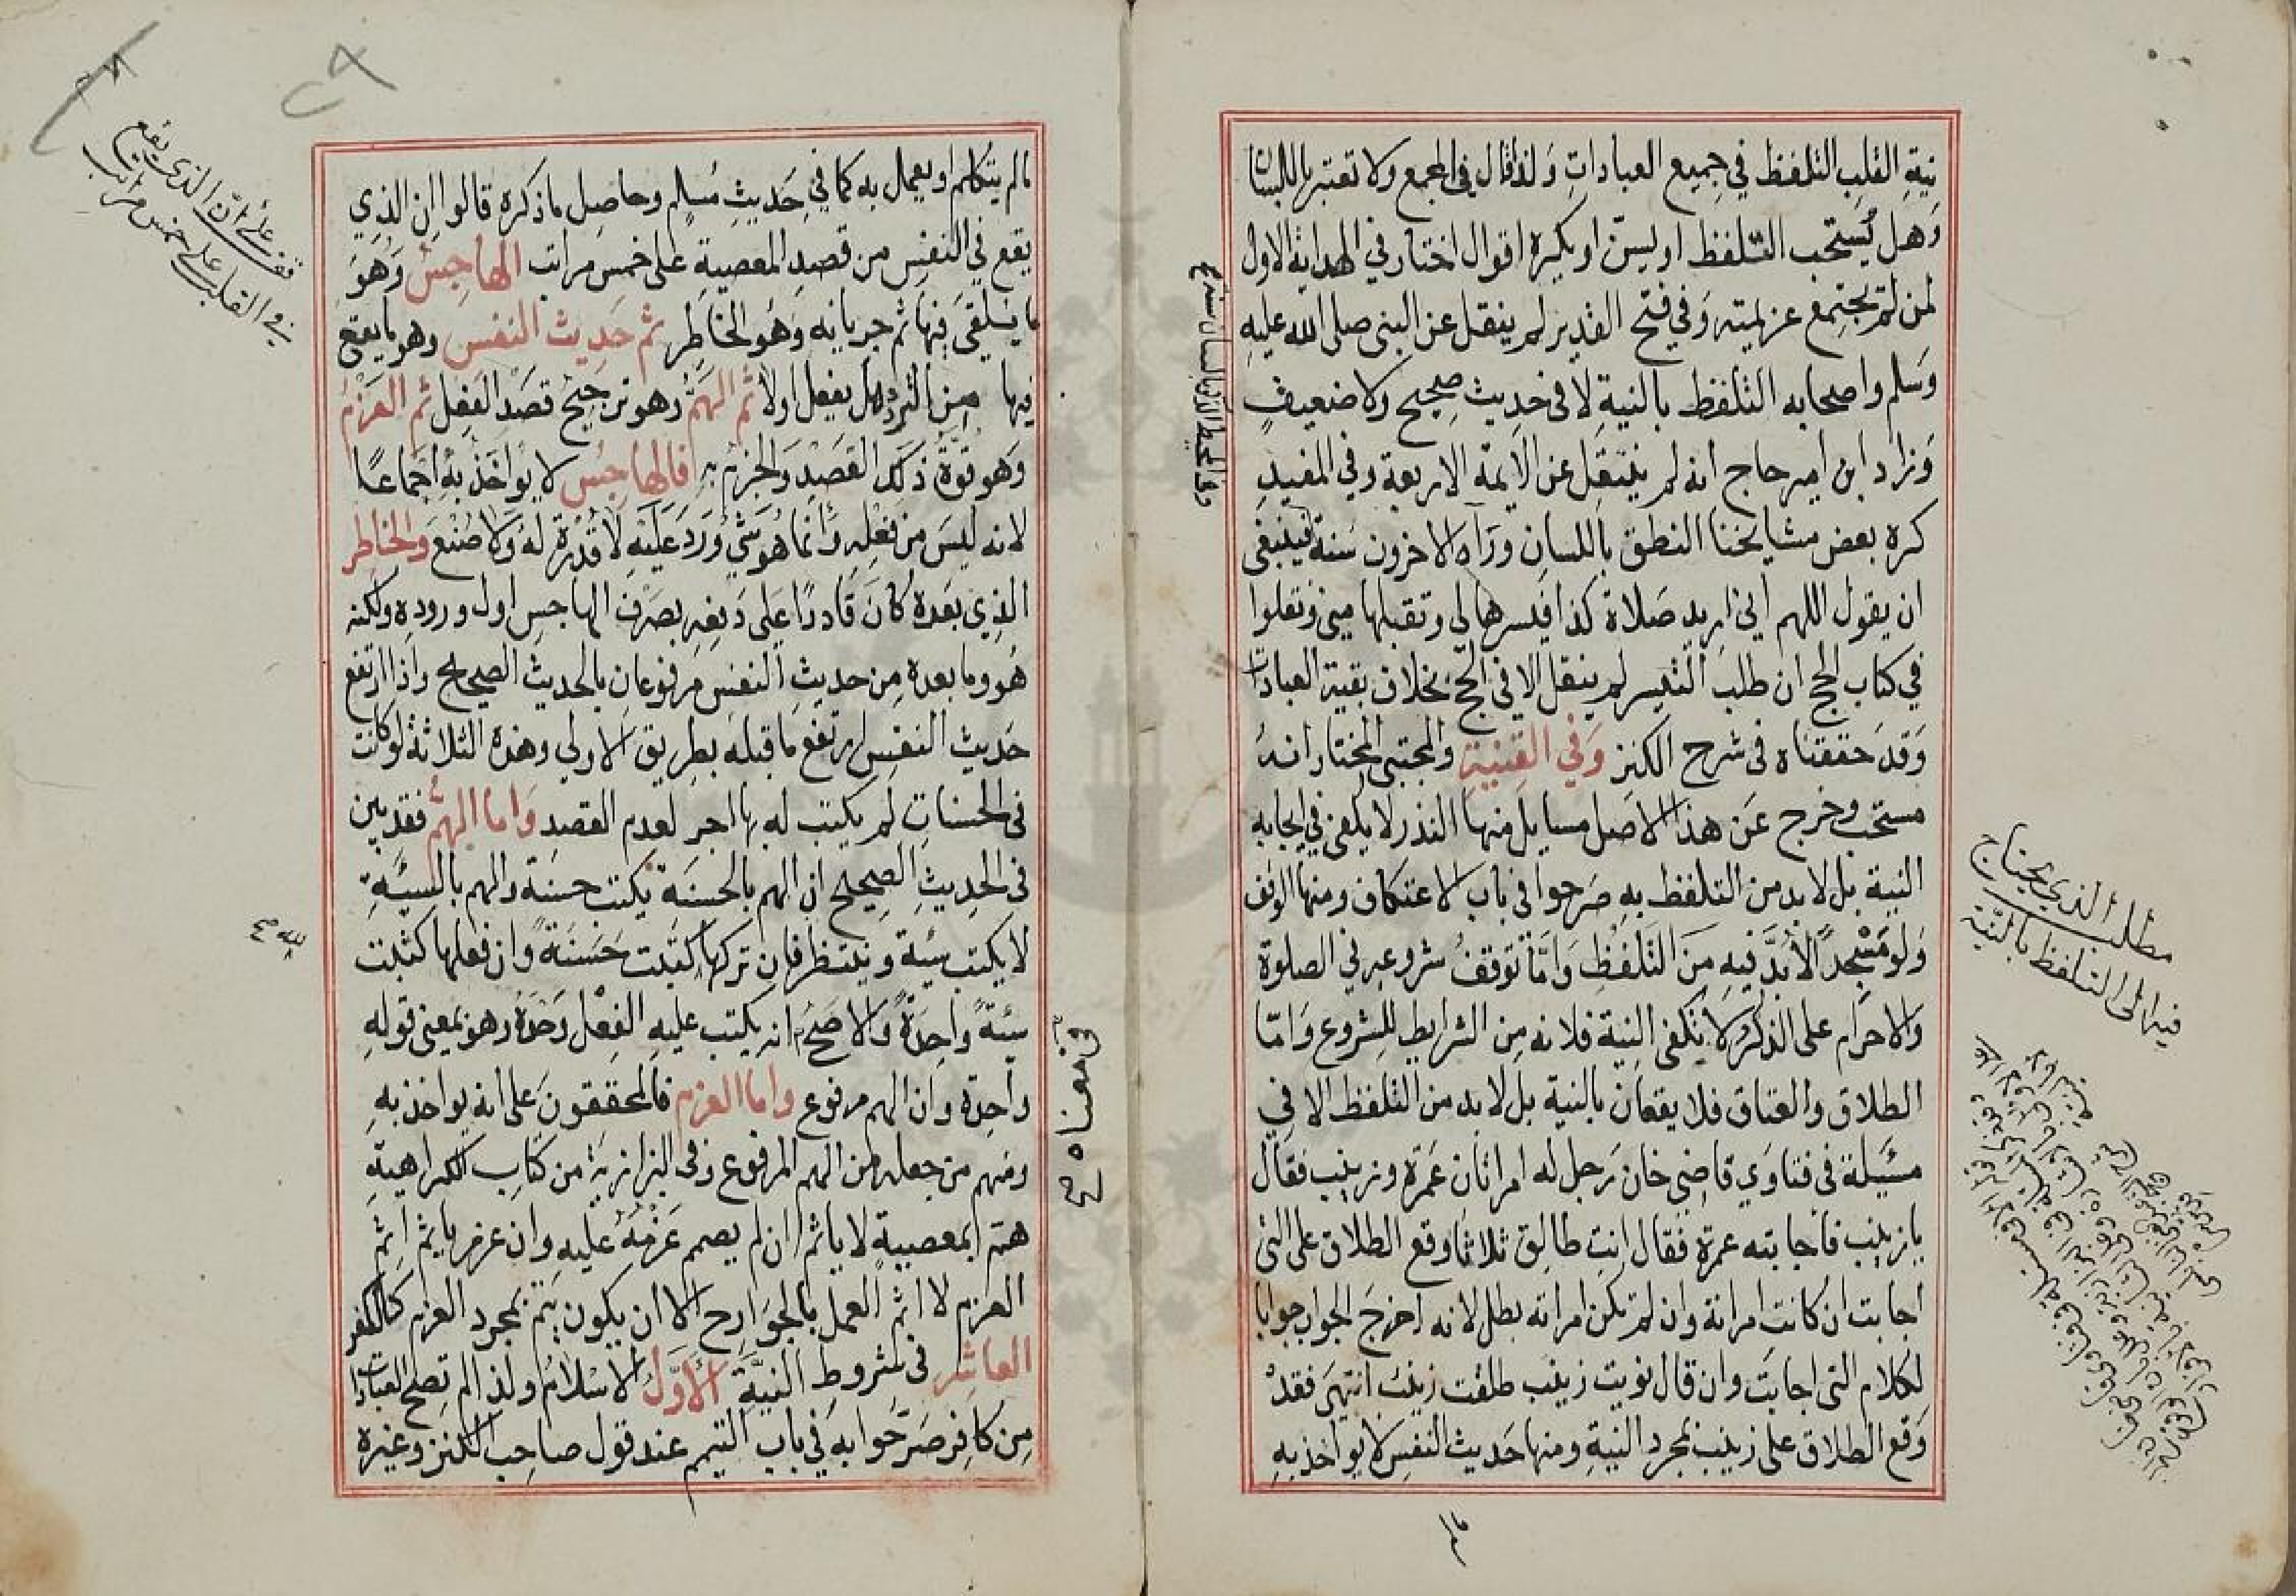 نية القلب التلفظ في جميع العبادات ولذا قال في المجمع ولا تعتبر باللسان
وهل يستحب التلفظ او يسن او يكره اقوال اختار في الهداية الاول
لمن لم تجتمع عزيمته وفي فتح القدير لم ينقل عن النبى صلى الله عليه
وسلم واصحابه التلفظ بالنية لا فى حديث صحيح ولا ضعيف
وزاد ابن امير حاج انه لم ينقل عن الائمة الاربعة وفي المفيد
كره بعض مشايخنا النطق باللسان ورآه الاخرون سنة فينبغى
ان يقول اللهم انى اريد صلاة كذا فيسرها لى وتقبلها منى ونقلوا
في كتاب الحج ان طلب التيسير لم ينقل الا فى الحج بخلاف بقية العبادات
وقد حققناه فى شرح الكنز وفي القنية والمجتبى المختار انه
مستحب وخرج عن هذا الاصل مسايل منها النذر لا يكفى في ايجابه
النية بل لا بد من التلفظ به صرحوا فى باب الاعتكاف ومنها الوقف
ولو مسجدا لا بد فيه من التلفظ واما توقف شروعه في الصلوة
والاحرام على الذكر ولا تكفى النية فلانه من الشرايط للشروع واما
الطلاق والعتاق فلا يقعان بالنية بل لا بد من التلفظ الا في
مسيلة فى فتاوي قاضي خان رجل له امراتان عمرة وزينب فقال
يا زينب فاجابته عمرة فقال انت طالق ثلاثا وقع الطلاق على التى
اجابت ان كانت امراته وان لم تكن امراته بطل لانه اخرج الجواب جوابا
لكلام التى اجابت وان قال نويت زينب طلقت زينب انتهى فقد
وقع الطلاق على زينب بمجرد النية ومنها حديث النفس لا يواخذ به
مطلب الذي يحتاج
فيه الى التلفظ بالنية
مالم يتكلم او يعمل به كما في حديث مسلم وحاصل ما ذكره قالوا ان الذي
يقع في النفس من قصد المعصية على خمس مراتب الهاجس وهو
ما يلقى فيها ثم جريانه وهو الخاطر ثم حديث النفس وهو ما يقع
فيها من التردد هل يفعل اولا ثم الهم وهو ترجيح قصد الفعل ثم العزم
وهو قوة ذلك القصد والجزم به فالهاجس لا يواخذ به اجماعا
لانه ليس من فعله وانما هو شئ ورد عليه لا قدرة له ولا صنع والخاطر
الذي بعده كان قادرا على دفعه بصرف الهاجس اول وروده ولكنه
هو وما بعده من حديث النفس مرفوعان بالحديث الصحيح واذا ارتفع
حديث النفس ارتفع ما قبله بطريق الاولي وهذه الثلاثة لو كانت
فى الحسنات لم يكتب له بها اجر لعدم القصد واما الهم فقد بين
فى الحديث الصحيح ان الهم بالحسنة يكتب حسنة والهم بالسيئة
لا يكتب سيئة وينتظر فان تركها كتبت حسنة وان فعلها كتبت
سيئة واحدة والاصح انه يكتب عليه الفعل وحده وهو بمعنى قوله
واحدة وان الهم مرفوع واما العزم فالمحققون على انه يواخذ به
ومنهم من جعله من الهم المرفوع وفى البزازية من كتاب الكراهية
هم بمعصية لا ياثم ان لم يصمم عزمه عليه وان عزم ياثم اثم
العزم لا اثم العمل بالجوارح الا ان يكون يتم بمجرد العزم كالكفر
العاشر فى شروط النية الاول الاسلام ولذا لم تصلح العبادات
من كافر صرحوا به في باب التيمم عند قول صاحب الكنز وغيره
قف على ان الذي يقع
في القلب على خمس مراتب
لله